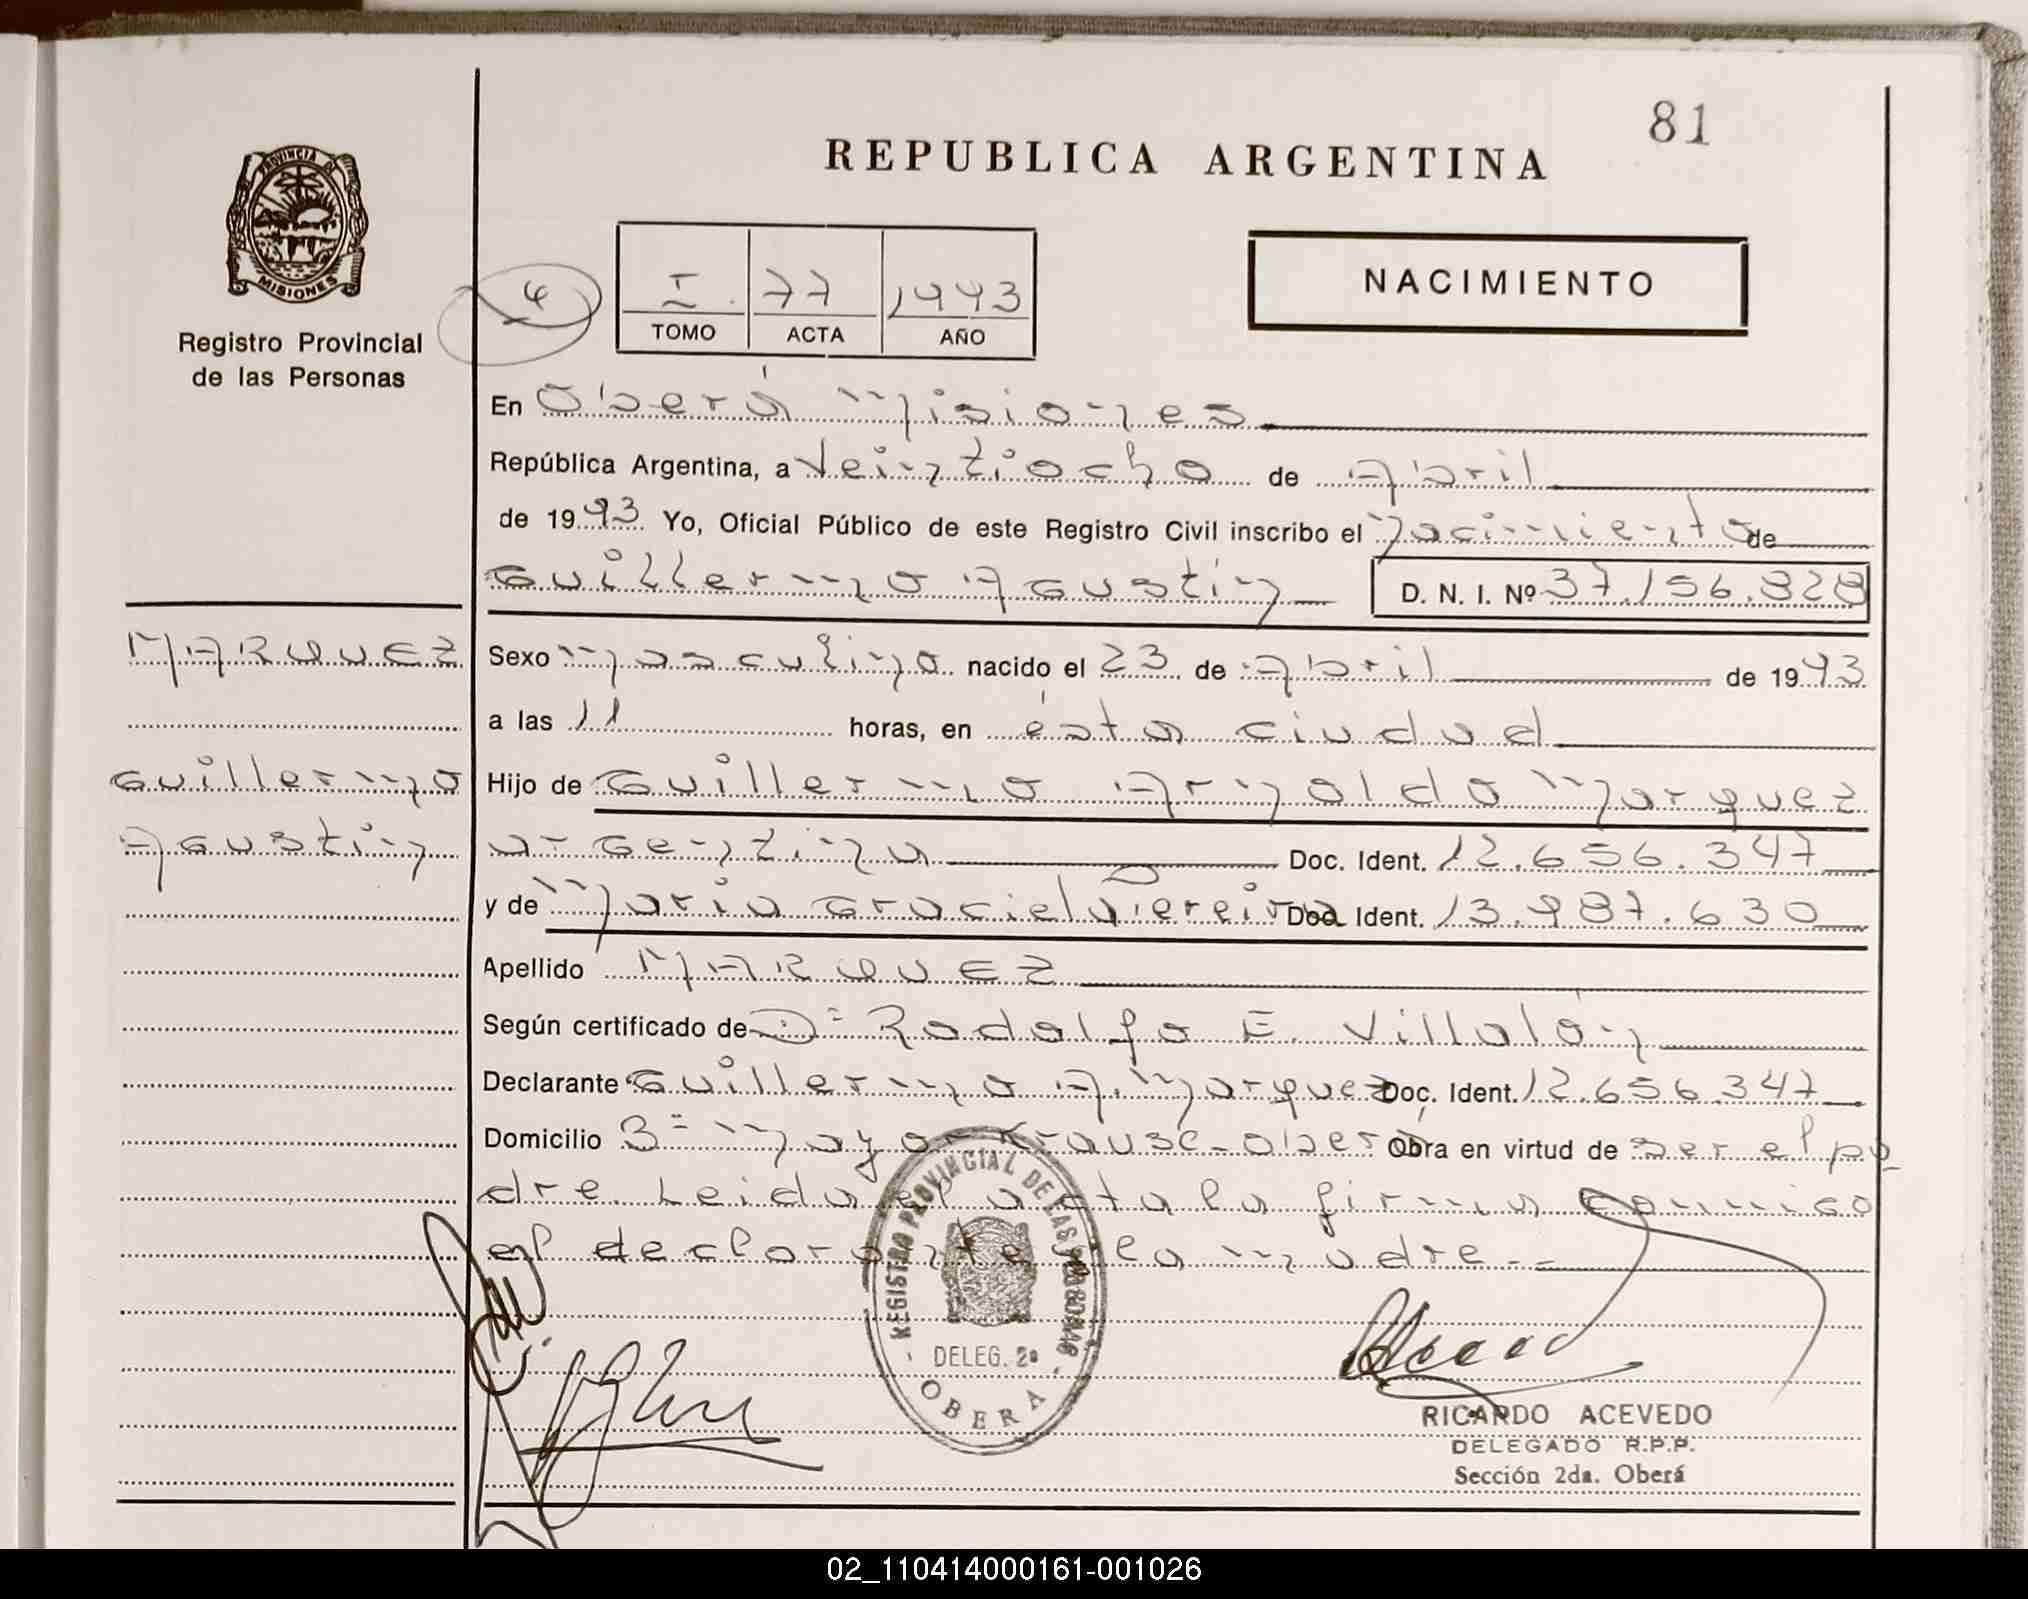 81
REPUBLICA ARGENTINA
PROVINCIA DE
MISIONES
Registro Provincial
de las Personas
4
I 77 1993
TOMO ACTA AÑO
NACIMIENTO
En Oberá Misiones
República Argentina, a Veintiocho de Abril
de 1993 Yo, Oficial Público de este Registro Civil inscribo el nacimiento de
Guillermo Agustin D. N. I. Nº 37.156.828
MARQUEZ
Sexo masculino nacido el 23 de Abril de 1993
a las 11 horas, en ésta ciudad
Guillermo
Agustin
Hijo de Guillermo Arnaldo Marquez
argentina Doc. Ident. 12.656.347
y de Maria Graciela Pereira Doc. Ident. 13.987.630
Apellido MARQUEZ
Según certificado de Dr Rodolfo E. Villalón
Declarante Guillermo A. Marquez Doc. Ident. 12.656.347
Domicilio Bº Mayor Krause-Oberá Obra en virtud de ser el pa
dre. Leida el acta la firma conmigo
el declarante y la madre.-
REGISTRO PROVINCIAL DE LAS PERSONAS
DELEG. 2ª
OBERA
RICARDO ACEVEDO
DELEGADO R.P.P.
Sección 2da. Oberá
02_110414000161-001026